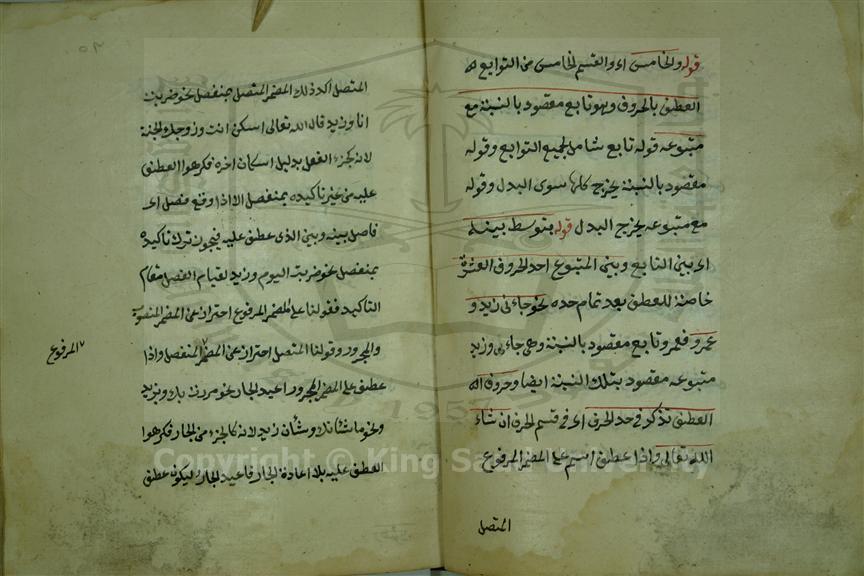 قوله والخامس اى والقسم الخامس من التوابع
العطف بالحروف وهو تابع مقصود بالنسبة مع
متبوعه قوله تابع شامل لجميع التوابع وقوله
مقصود بالنسبة يخرج كلها سوى البدل وقوله
مع متبوعه يخرج البدل قوله يتوسط بينه
اى بين التابع وبين المتبوع احد الحروف العشرة
خاصة للعطف بعد تمام حده نحو جاءنى زيد و
عمرو فعمرو تابع مقصود بالنسبة وهى جاءنى وزيد
متبوعه مقصود بتلك النسبة ايضا وحروف
العطف تذكر فى حد الحرف اى فى قسم الحرف ان شاء
الله تعالى واذا عطف اسم على المضمر المرفوع
المتصل
المتصل اكد ذلك المضمر المتصل بمنفصل نحو ضربت
انا وزيد قال الله تعالى اسكن انت وزوجك الجنة
لانه كجزء الفعل بدليل اسكان اخره فكرهوا العطف
عليه من غير تاكيده بمنفصل الا اذا وقع فصل اى
فاصل بينه وبين الذى عطف عليه فيجوز ترك تاكيده
بمنفصل نحو ضربت اليوم وزيد لقيام الفصل مقام
التاكيد فقولنا على المضمر المرفوع احتراز عن المضمر المنصوب
والمجرور وقولنا المتصل احتراز عن المضمر المنفصل واذا
المرفوع
عطف على المضمر المجرور اعيد الجار نحو مررت بك وبزيد
ونحو ما شانك وشأن زيد لانه كالجزء من الجار فكرهوا
العطف عليه بلا اعادة الجار فاعيد الجار ليكون عطف
Copyright © King Saud University
1957